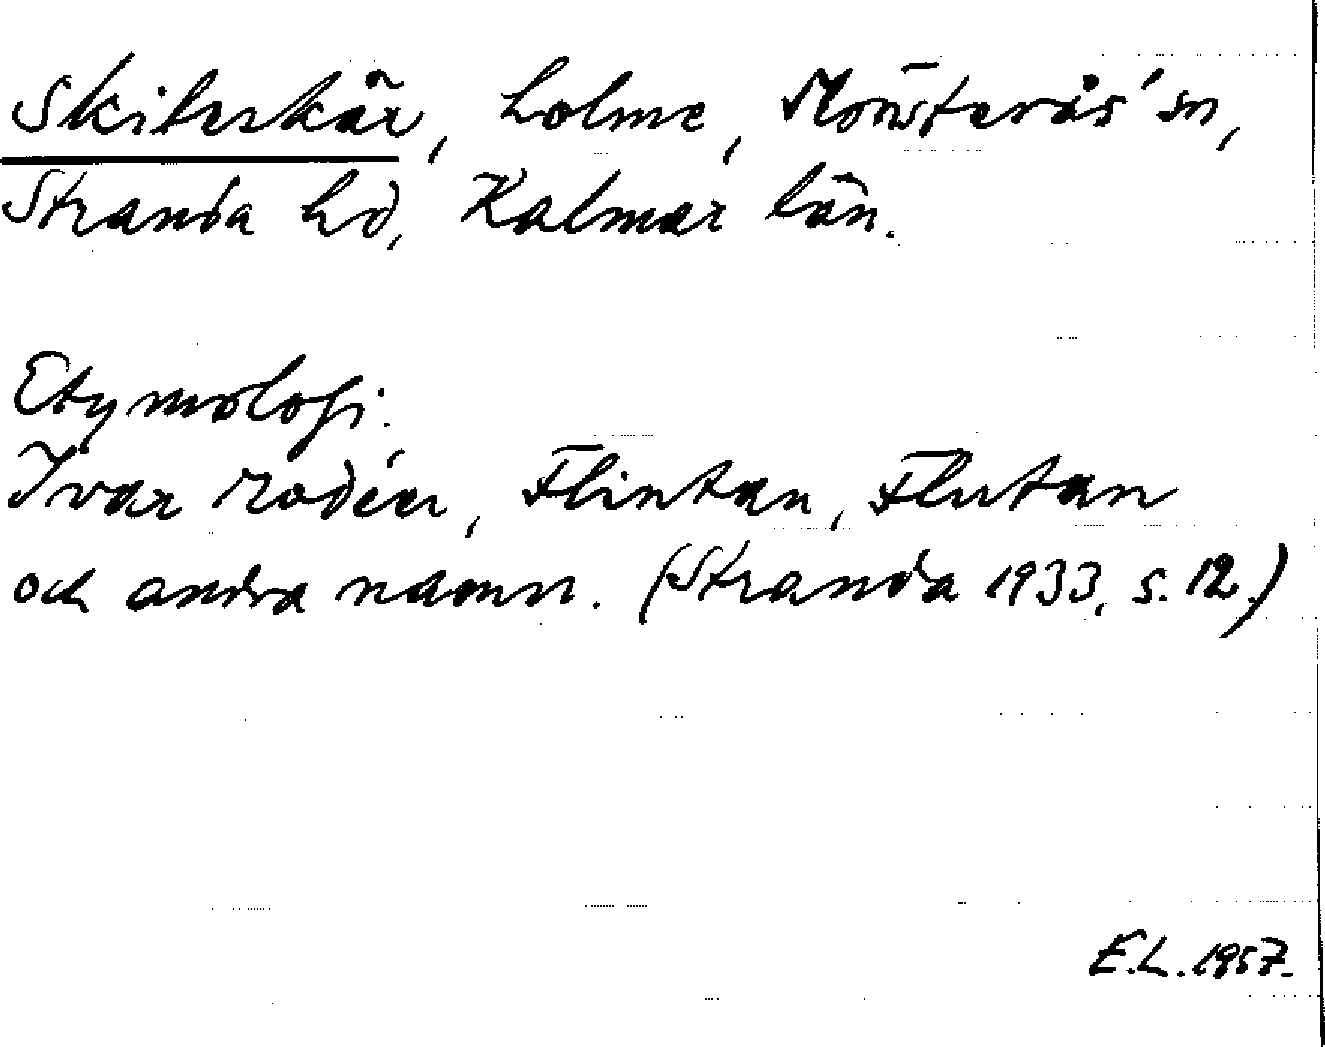 Skiterskär, holme, Mönsterås sn,
Stranda hd, Kalmar län.
Etymologi.
Ivar Modéer, Flintan, Flutan
och andra namn. (Stranda 1933, s. 12.)
E.L. 1957.